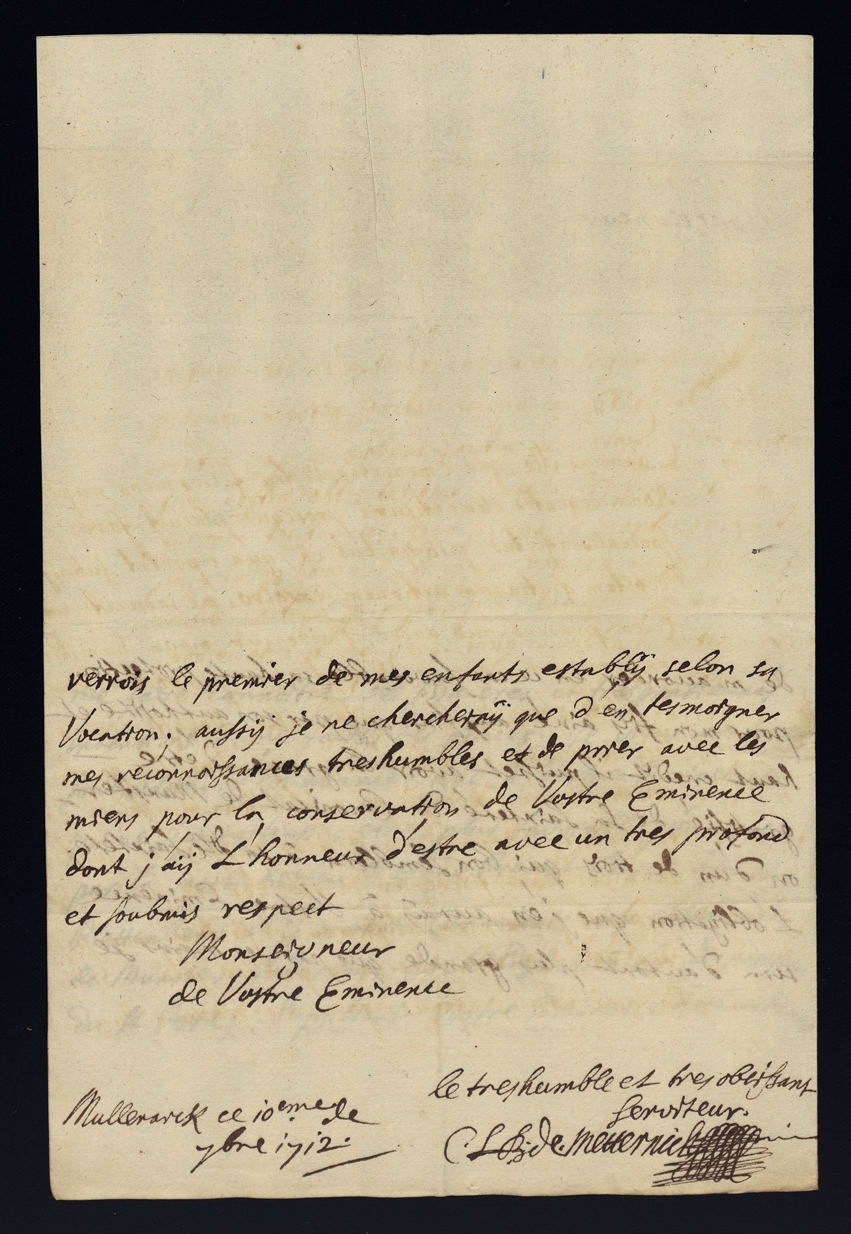 verrois le premier de mes enfants establÿ selon sa
Vocation; aussÿ je ne chercheraÿ que d'en tesmoigner
mes reconnoissances treshumbles et de prier avec les
miens pour la conservation de Vostre Eminence
dont j'aÿ L'honneur d'estre avec un tres profond
et soubmis respect
Monseigneur
de Vostre Eminence
le treshumble et tres obeissant
serviteur.
C L B: de Metternich
Mullenarck ce 10eme de
7bre 1712.